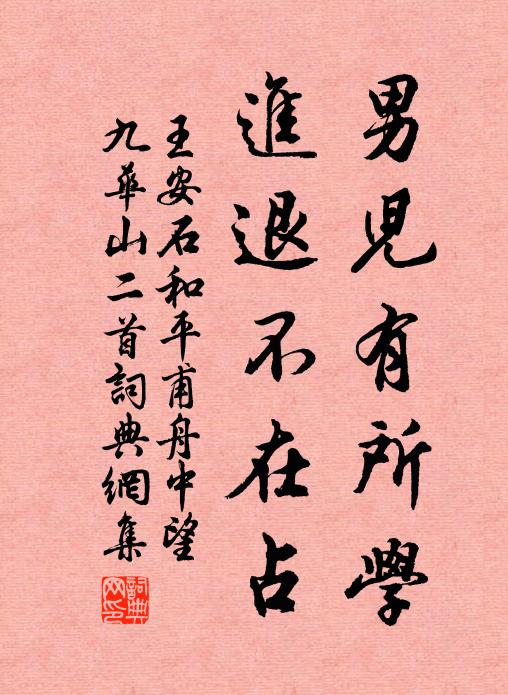 男兒有所學
進退不在占
王安石和平甫舟中望
九華山二首詞典網集
詞典
网印